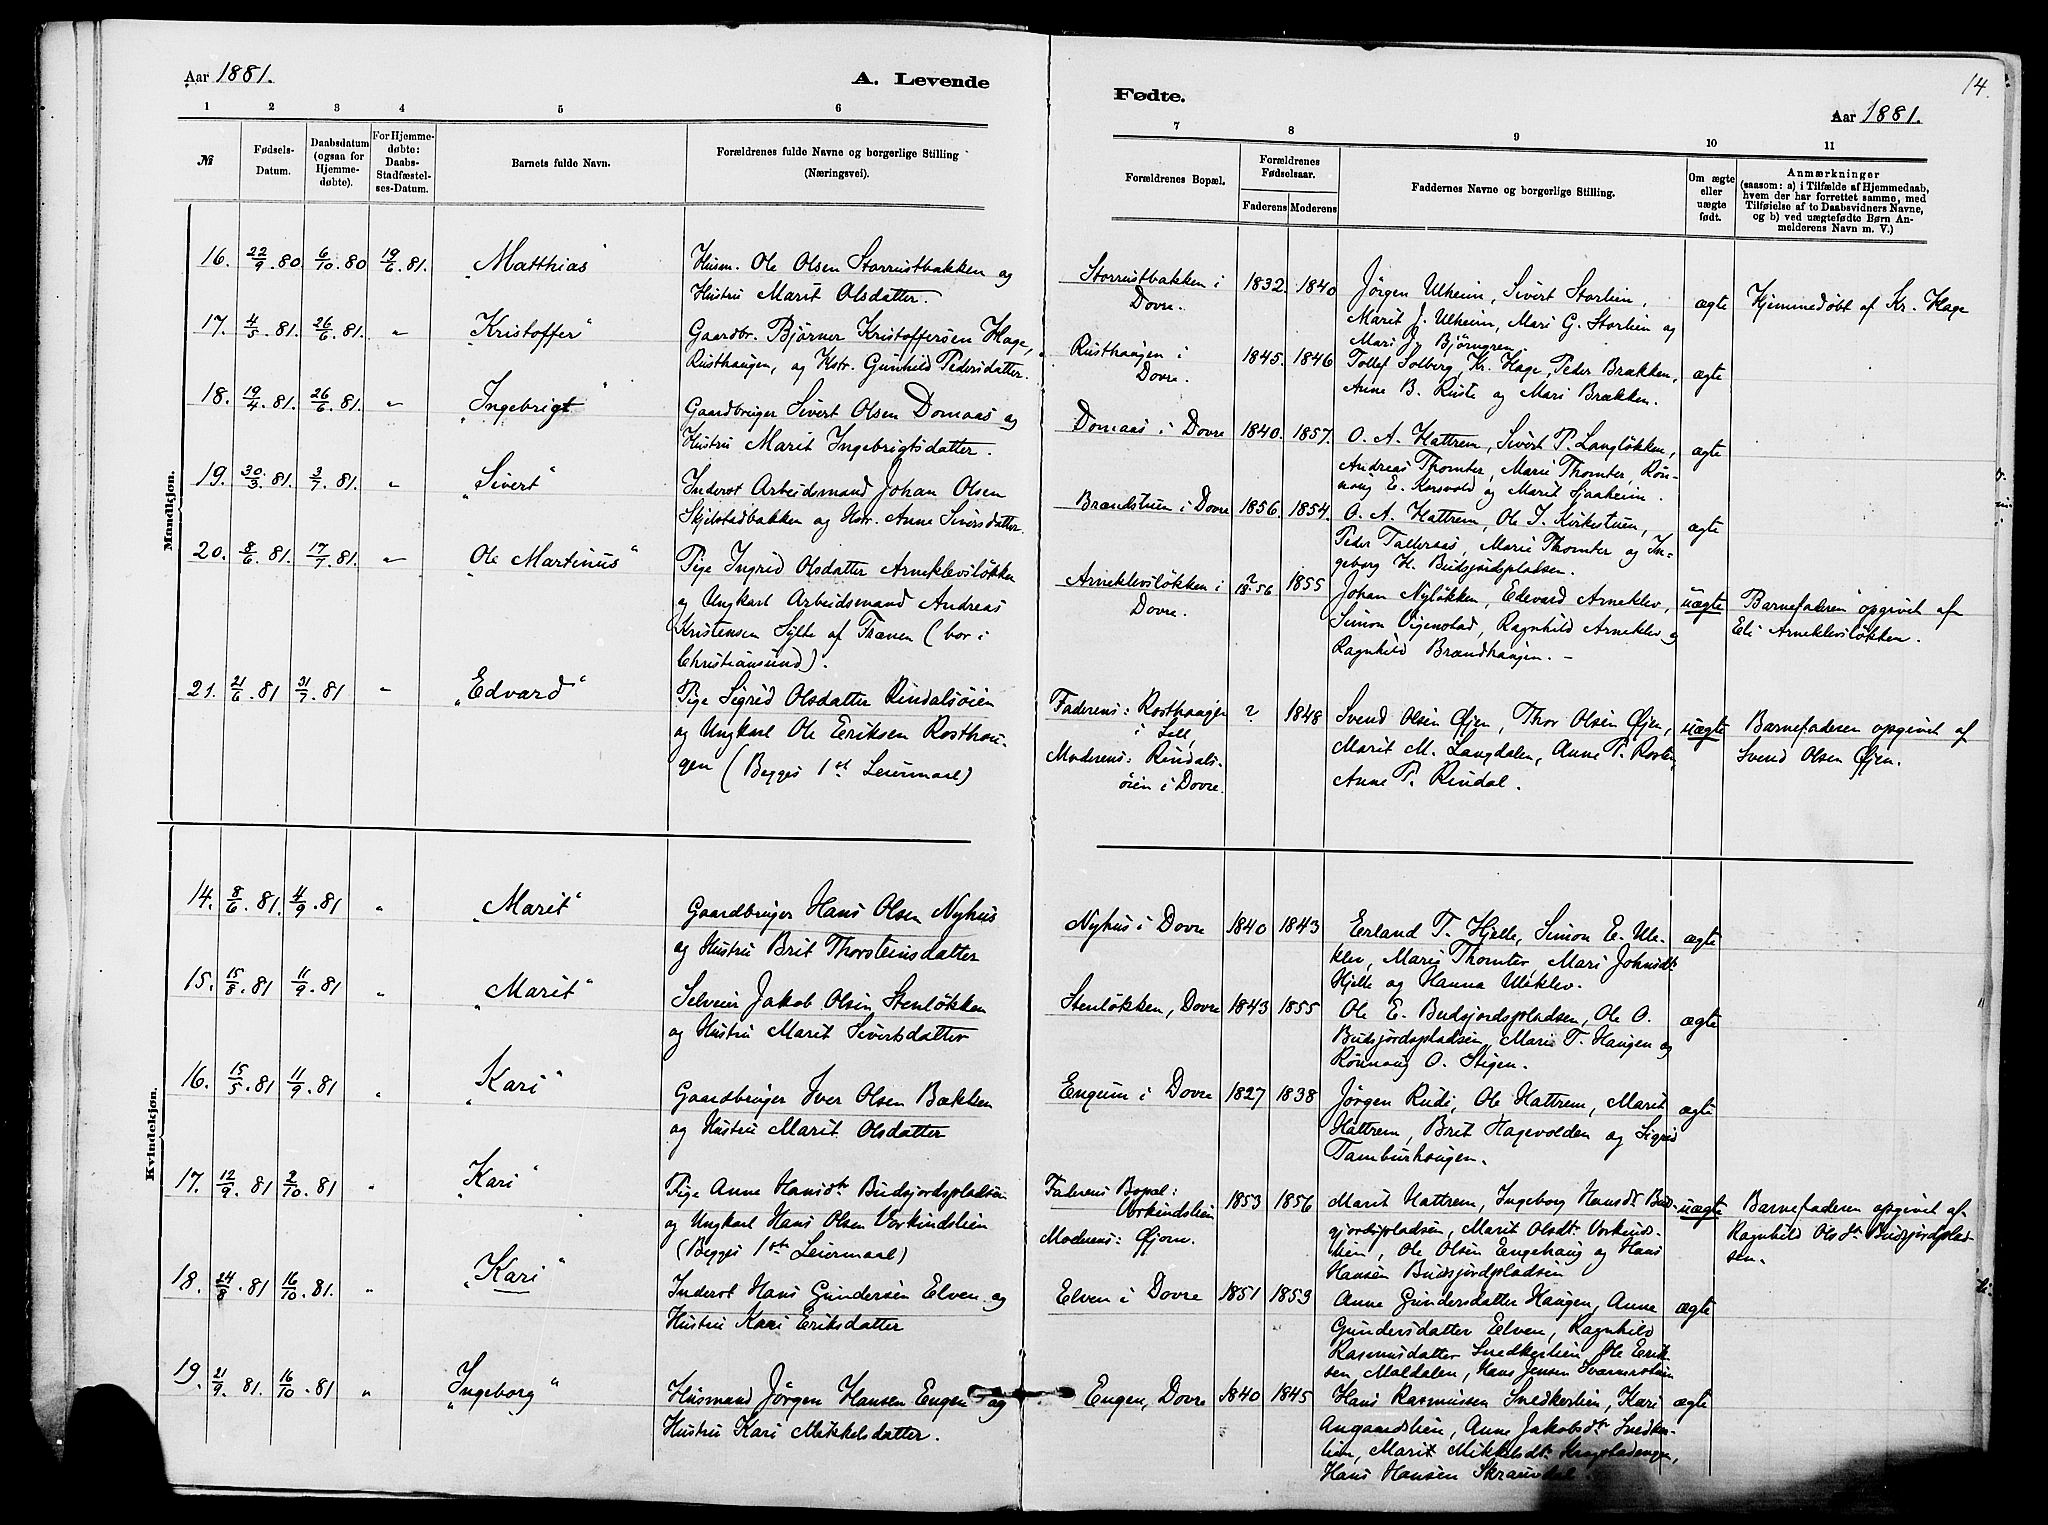 Aar 1881.
A. Levende
1 2 3 4 5 6
№
Fødsels-
Datum.
Daabsdatum
(ogsaa for
Hjemme-
døbte).
For Hjemme-
døbte:
Daabs-
Stadfæstel-
ses-Datum.
Barnets fulde Navn.
Forældrenes fulde Navne og borgerlige Stilling
(Næringsvei).
Mandkjøn.
16. 22/9. 80 6/10. 80 19/6. 81. "Matthias"
Husm. Ole Olsen Storrustbakken og
Hustru Marit Olsdatter.
17. 4/5. 81. 26/6. 81. " "Kristoffer"
Gaardbr. Bjørner Kristoffersen Hage,
Rusthaugen, og Hstr. Gunhild Pedersdatter.
18. 19/4. 81. 26/6. 81. " "Ingebrigt"
Gaardbruger Sivert Olsen Domaas og
Hustru Marit Ingebrigtsdatter.
19. 30/3. 81. 3/7. 81. " "Sivert"
Inderst Arbeidsmand Johan Olsen
Skjelstadbakken og Hstr. Anne Siversdatter.
20. 8/6. 81. 17/7. 81. " "Ole Martinus"
Pige Ingrid Olsdatter Arneklevsløkken
og Ungkarl Arbeidsmand Andreas
Kristensen Sylte af Frænen (bor i
Christiansund).
21. 21/6. 81 31/7. 81 " "Edvard"
Pige Sigrid Olsdatter Rindalsøien
og Ungkarl Ole Eriksen Rosthau-
gen (Begges 1st Leiermaal)
Kvindekjøn.
14. 8/6. 81. 4/9. 81 " "Marit"
Gaardbruger Hans Olsen Nyhus
og Hustru Brit Thorsteinsdatter
15. 15/8. 81 11/9. 81 " "Marit"
Selveier Jakob Olsen Stenløkken
og Hustru Marit Sivertsdatter
16. 15/5. 81 11/9. 81 " "Kari"
Gaardbruger Iver Olsen Bækken
og Hustru Marit Olsdatter
17. 12/9. 81 2/10. 81 " "Kari"
Pige Anne Hansdt. Budsjordspladsen
og Ungkarl Hans Olsen Vorkindslien
(Begges 1ste Leiermaal)
18. 24/8. 81 16/10. 81. " "Kari"
Inderst Hans Gundersen Elven og
Hustru Kari Eriksdatter
19. 21/9. 81. 16/10. 81 " "Ingeborg"
Husmand Jørgen Hansen Engen og
Hustru Kari Mikkelsdatter.
14.
Fødte.
Aar 1881.
7 8 9 10 11
Forældrenes Bopæl.
Forældrenes
Fødselsaar.
Faderens Moderens
Faddernes Navne og borgerlige Stilling.
Om ægte
eller
uægte
født.
Anmærkninger
(saasom: a) i Tilfælde af Hjemmedaab,
hvem der har forrettet samme, med
Tilføielse af to Daabsvidners Navne,
og b) ved uægtefødte Børn An-
melderens Navn m. V.)
Storrustbakken i
Dovre.
1832. 1840
Jørgen Ulheim, Sivert Storlien,
Marit J. Ulheim, Mari G. Storlien og
Mari Bjørngren.
ægte
Hjemmedøbt af Kr. Hage
Rusthaugen i
Dovre.
1845. 1846
Tollef Solberg, Kr. Hage, Peder Brækken,
Anne B. Ruste og Mari Brækken.
ægte
Domaas i Dovre 1840. 1857.
O. A. Hattrem, Sivert P. Langløkken,
Andreas Thomter, Marie Thomter, Røn-
naug E. Korsvold og Marit Sjaaheim.
ægte
Brændstuen i Dovre 1856. 1854.
O. A. Hattrem, Ole J. Kirkestuen,
Peder Talleraas, Marie Thomter og In-
geborg H. Budsjordspladsen.
ægte
Arneklevsløkken i
Dovre.
?
1856 1855
Johan Nyløkken, Edevard Arneklev,
Simon Vigenstad, Ragnhild Arneklev og
Ragnhild Brændhaugen. —
uægte
Barnefaderen opgivet af
Eli Arneklevsløkken.
Faderens: Rosthaugen
i Lell,
Moderens: Rindals-
øien i Dovre.
? 1848
Svend Olsen Øjen, Thor Olsen Øjen,
Marit M. Langdalen, Anne P. Rosten,
Anne P. Rindal.
uægte
Barnefaderen opgivet af
Svend Olsen Øjen.
Nyhus i Dovre 1840 1843
Erland T. Hjelle, Simon E. Ule-
klev, Marie Thomter, Mari Johnsdt.
Hjelle og Hanna Uleklev.
ægte
Stenløkken, Dovre 1843 1855
Ole E. Budsjordspladsen, Ole O.
Budsjordspladsen, Marie T. Haugen og
Rønnaug O. Stigen.
ægte
Engum i Dovre 1827 1838
Jørgen Rudi, Ole Hattrem, Marit
Hattrem, Brit Hagevolden og Sigrid
Tamburhaugen.
ægte
Faderens Bopæl:
Vorkindslien
Moderens: Øjorn.
1853 1856
Marit Hattrem, Ingeborg Hansdt. Bud-
sjordspladsen, Marit Olsdt. Vorkinds-
lien, Ole Olsen Engehaug og Hans
Hansen Budsjordpladsen
uægte
Barnefaderen opgivet af
Ragnhild Olsdt. Budsjordsplad-
sen.
Elven i Dovre 1851 1859
Anne Gundersdatter Haugen, Anne
Gundersdatter Elven, Ragnhild
Rasmusdatter Snedkerlien, Ole Erik-
sen Maldalen, Hans Jensen
ægte
Engen, Dovre 1840 1845
Hans Rasmussen Snedkerlien, Kari
Angaardslien, Anne Jakobsdt. Snedker-
lien, Marit Mikkelsdt.
Hans Hansen
ægte